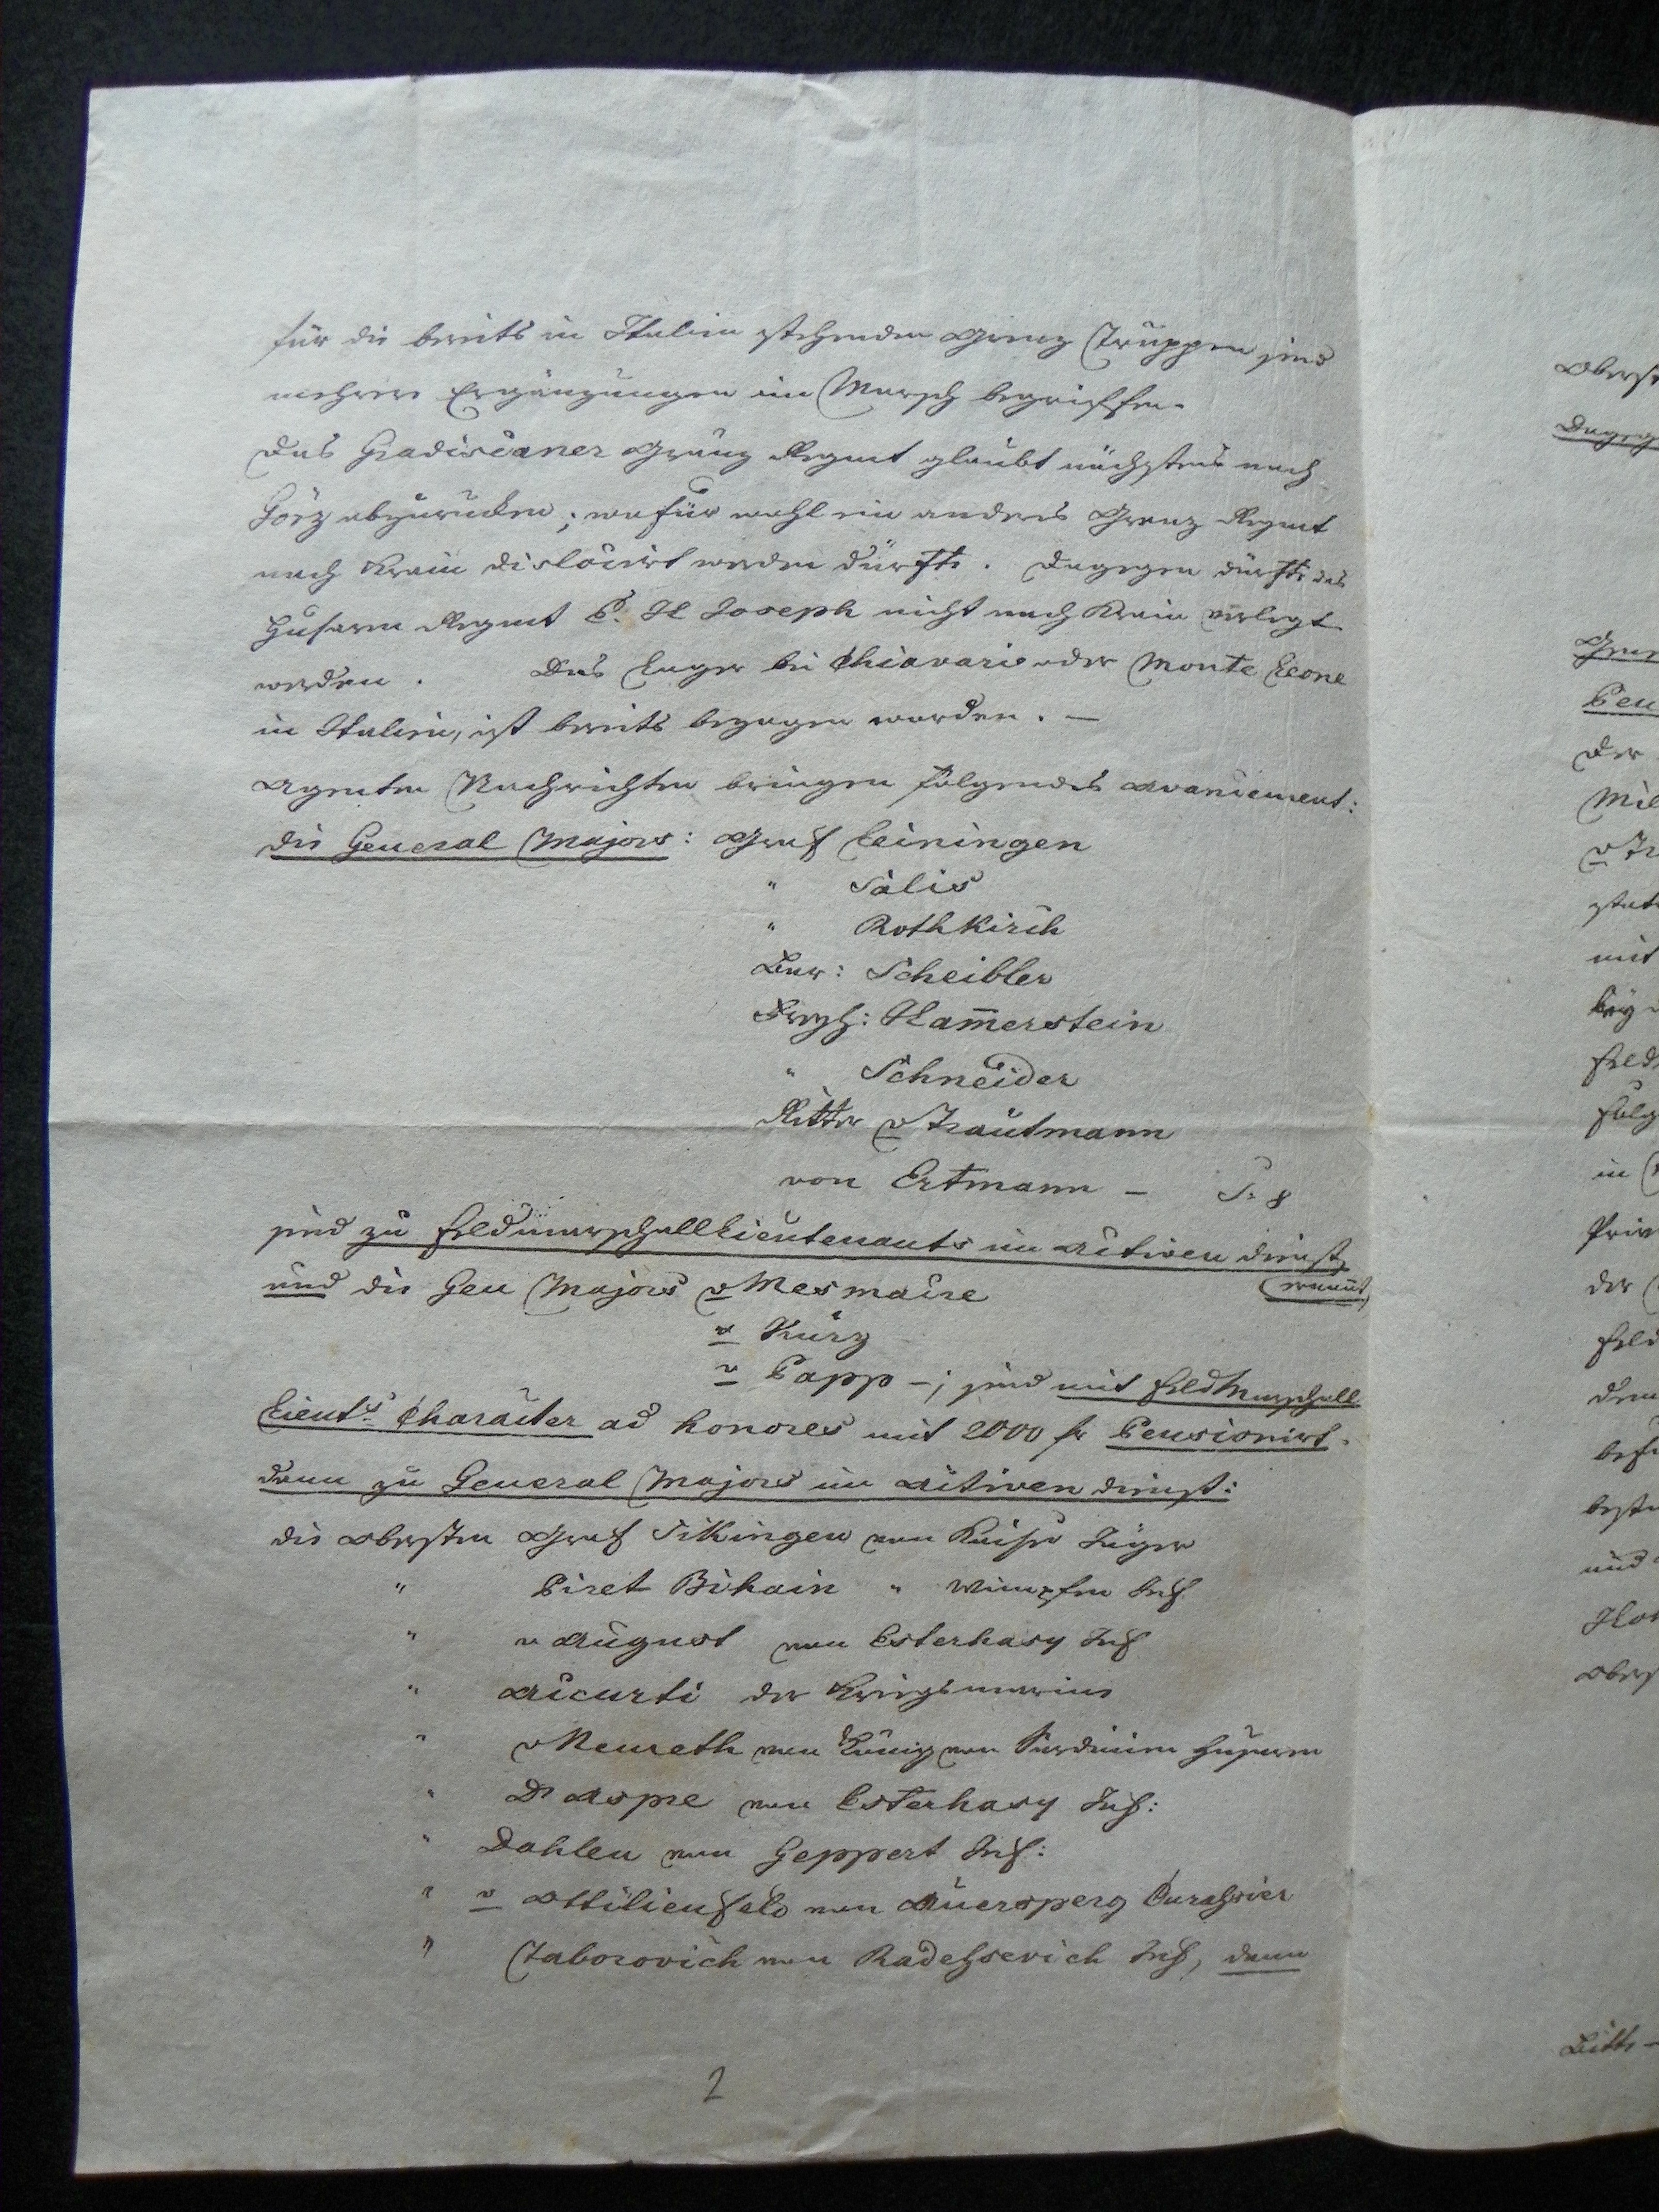 für die bereits in Italien stehenden Grenz Truppen sind
mehrere Ergänzungen im Marsch begriffen.
Das Gradiscaner Gränz Regmt glaubt nächstens nach
Görz abzurücken; wofür wohl ein anderes Grenz Regmt
nach Krain dislocirt werden dürfte. Dagegen dürfte das
Husaren Regmt E. H Joseph nicht nach Krain verlegt
werden. Das Lager bei Chiavari oder Monte Leone
in Italien, ist bereits bezogen worden. —
Agenten Nachrichten bringen folgendes Avancement:
die General Majors: Graf Leiningen
" Salis
" Rothkirch
Bar: Scheibler
Freyh: Ham̄erstein
" Schneider
Ritter v Trautmann
von Ertmann – S. 8
sind zu Feldmarschalllieutenants im activen Dienst
ernant,
und die Gen Majors v Mesmacre
v Kurz
v Papp –; sind mit Feldmarschall
Lieuts Character ad honores mit 2000 fr Pensionirt.
dann zu General Majors im activen Dienst:
die Obersten Graf Sikingen von Kaiser Jäger
" Piret Bihain " Wimpfen Inf
" v August von Esterhasy Inf
" Acurti der Kriegsmarine
" v Nemeth von König von Sardinien Husaren
" D Aspre von Esterhasy Inf:
" Dahlen von Geppert Inf:
" v Ottilienfeld von Auersperg Curassier
" Taborovich von Radossevich Inf, dann
2
Oberst
Bitte –